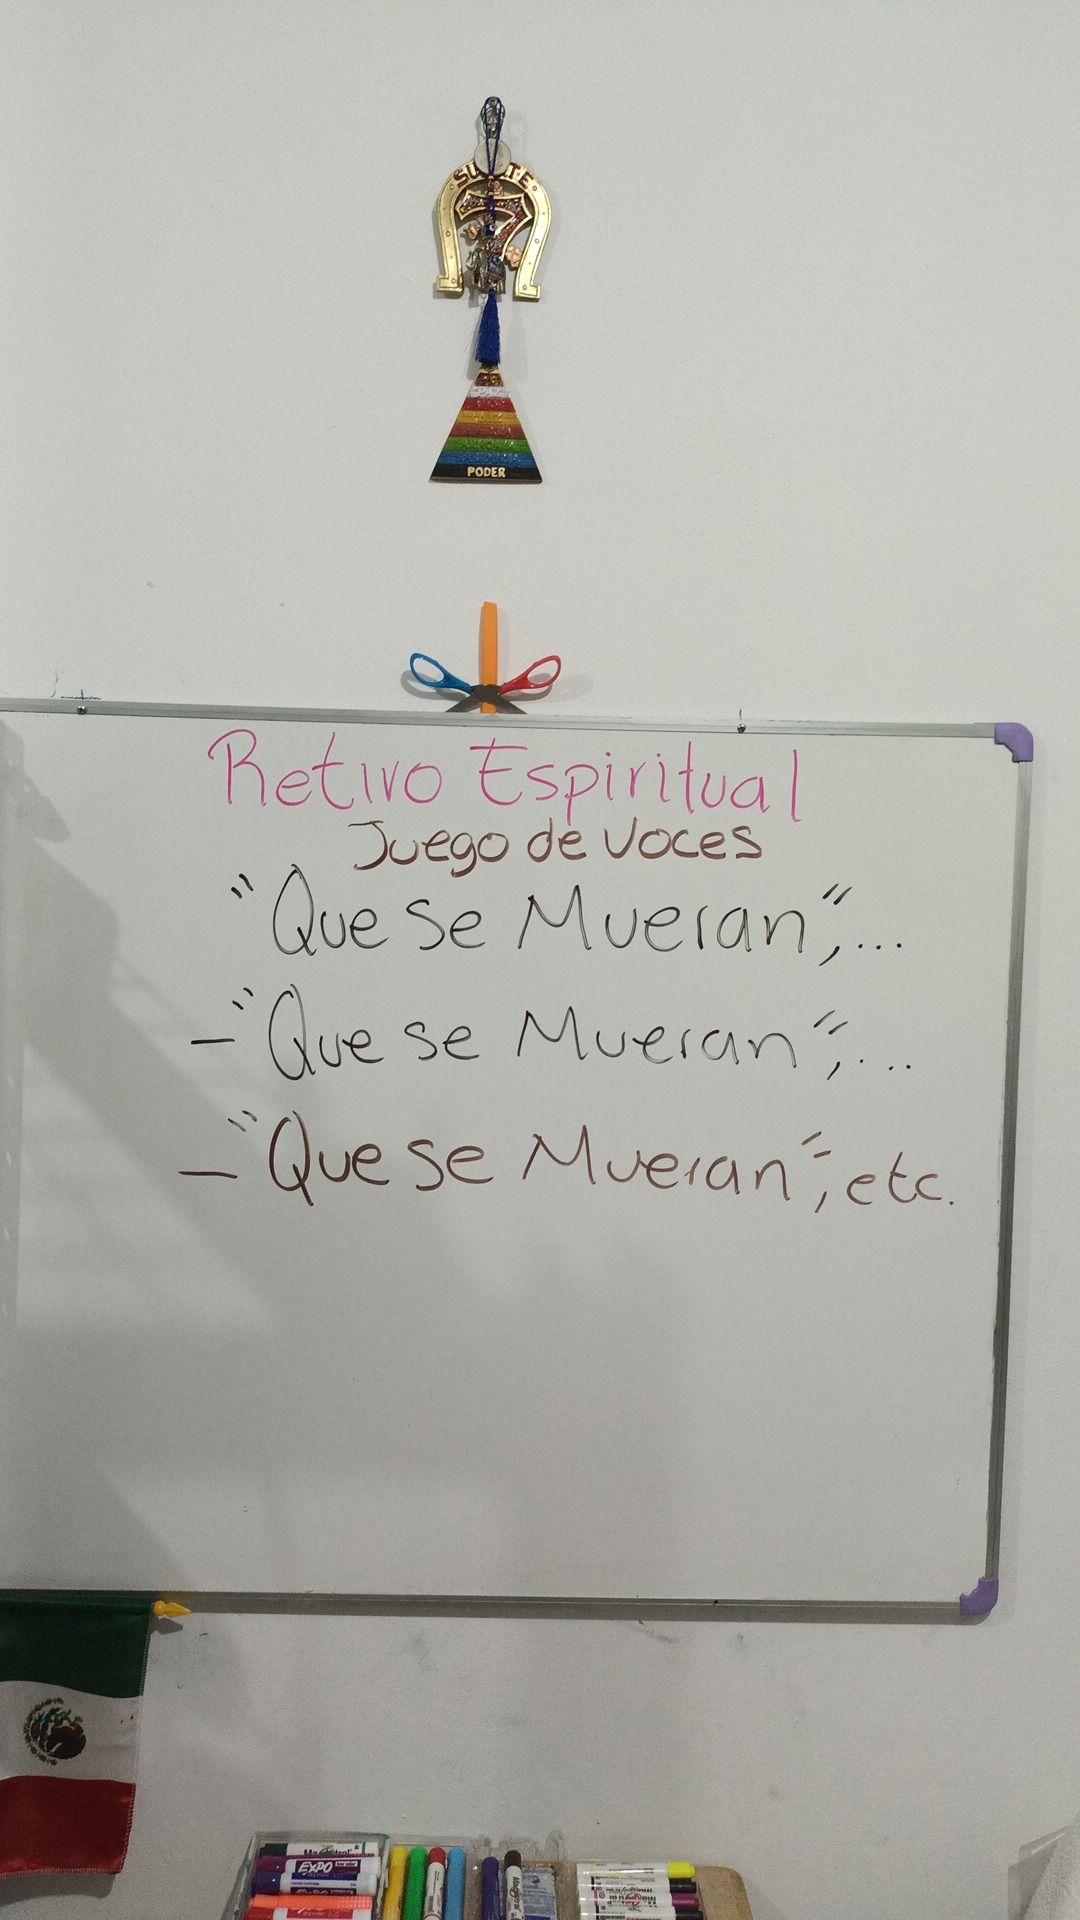 SUERTE
7
PODER
Retiro Espiritual
Juego de voces
"Que se Mueran",...
- "Que se Mueran",...
- "Que se Mueran", etc.
Magistral
EXPO
EXPO